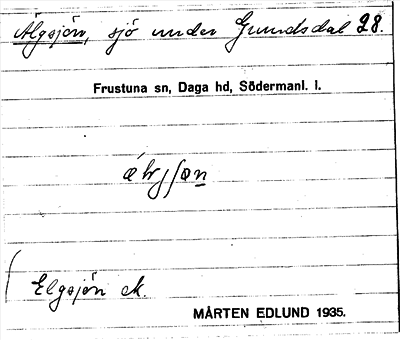 Älgsjön, sjö under Grundsdal 28.
Frustuna sn, Daga hd, Södermanl. l.
Elgsjön
MÅRTEN EDLUND 1935.